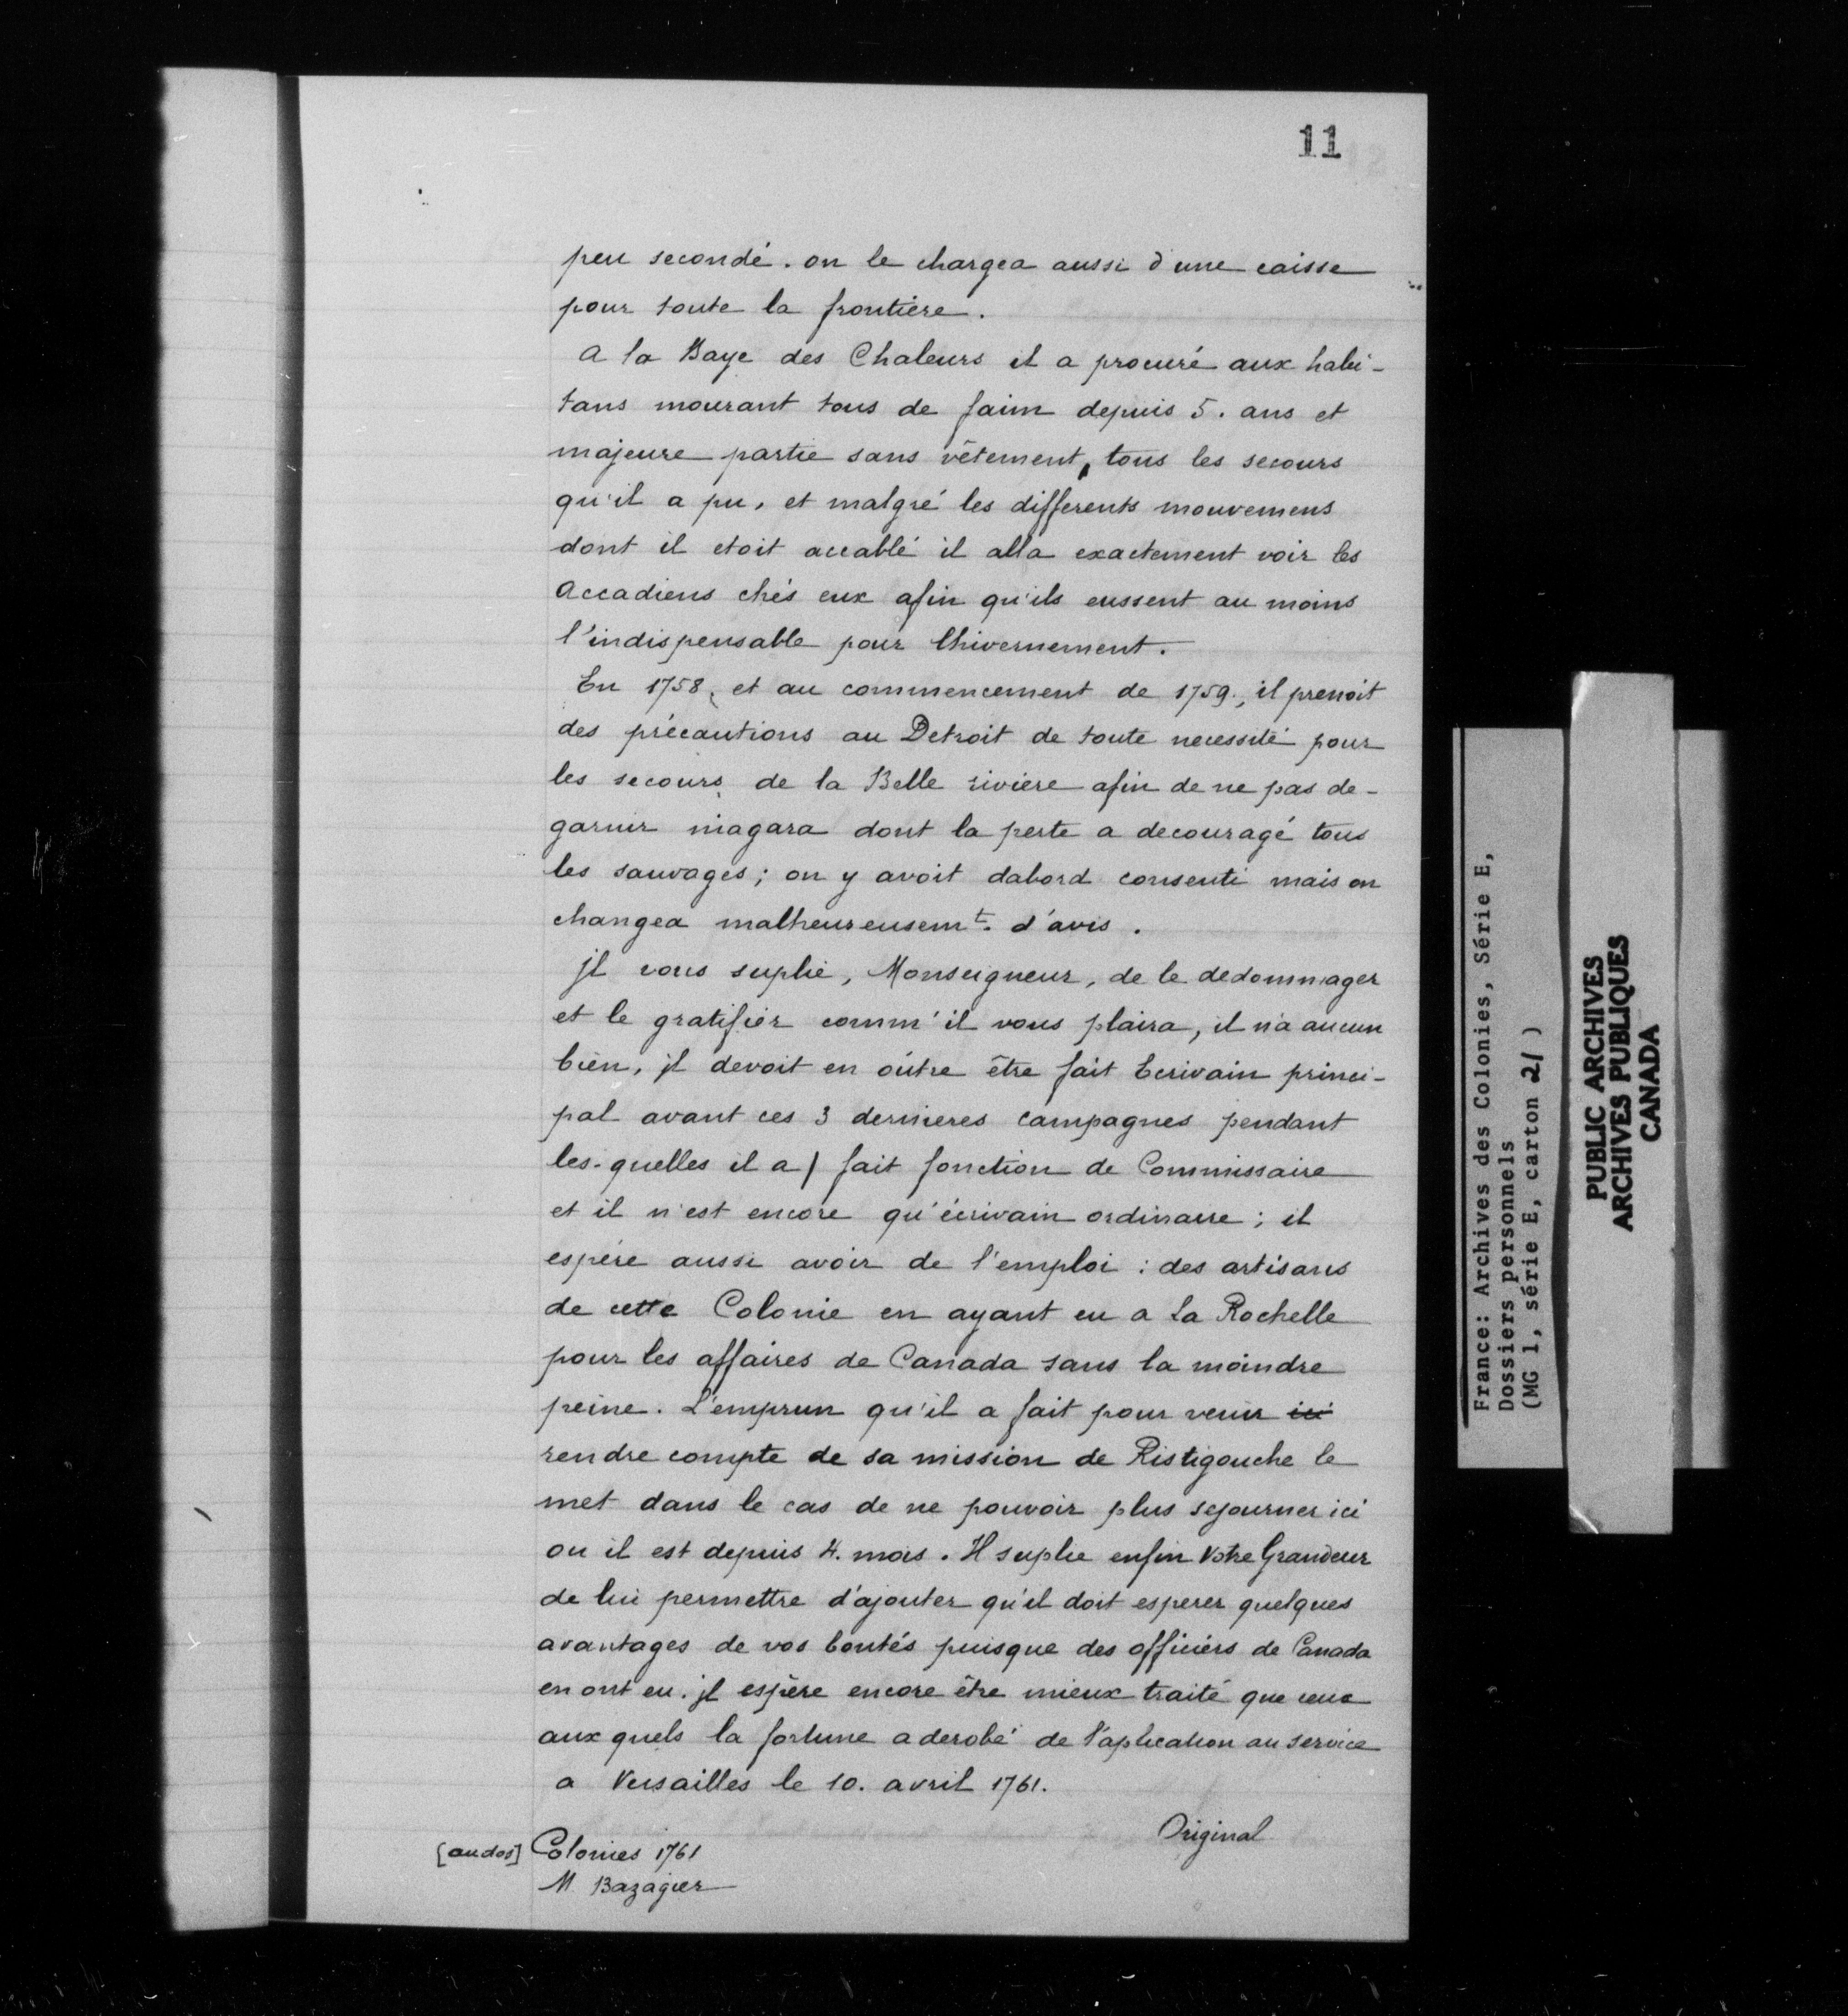 11
peu secondé. on le chargea aussi d'une caisse
pour toute la frontiere.
A la Baye des Chaleurs il a procuré aux habi-
tans mourant tous de faim depuis 5. ans et
majeure partie sans vêtement, tous les secours
qu'il a pu, et malgré les differents mouvemens
dont il etoit accablé il alla exactement voir les
Accadiens chés eux afin qu'ils eussent au moins
l'indispensable pour lhivernement.
En 1758, et au commencement de 1759., il prenoit
des précautions au Detroit de toute necessité pour
les secours de la Belle riviere afin de ne pas de-
garnir niagara dont la perte a decouragé tous
les sauvages; on y avoit dabord consenti mais on
changea malheureusemt. d'avis.
jl vous suplie, Monseigneur, de le dedommager
et le gratifier comm'il vous plaira, il n'a aucun
bien, jl devoit en outre être fait Ecrivain princi-
pal avant ces 3 dernieres campagnes pendant
les-quelles il a fait fonction de Commissaire
et il n'est encore qu'écrivain ordinaire; il
espére aussi avoir de l'emploi: des artisans
de cette Colonie en ayant eu a La Rochelle
pour les affaires de Canada sans la moindre
peine. L'emprun qu'il a fait pour venir ici
rendre compte de sa mission de Ristigouche le
met dans le cas de ne pouvoir plus sejourner ici
ou il est depuis 4. mois. Il suplie enfin Votre Grandeur
de lui permettre d'ajouter qu'il doit esperer quelques
avantages de vos bontés puisque des officiers de Canada
en ont eu. jl espère encore être mieux traité que ceux
aux quels la fortune a derobé de l'aplication au service
a Versailles le 10. avril 1761.
Original
[au dos] Colonies 1761
M Bazagier
France: Archives des Colonies, Série E,
Dossiers personnels
(MG 1, série E, carton 21)
PUBLIC ARCHIVES
ARCHIVES PUBLIQUES
CANADA